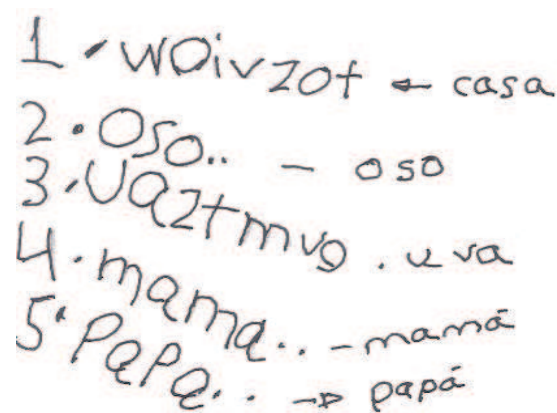 1. woivzot ← casa
2. Oso.. - oso
3. Uaztmvg . uva
4. mama.. - mamá
5. PaPa.. → papá